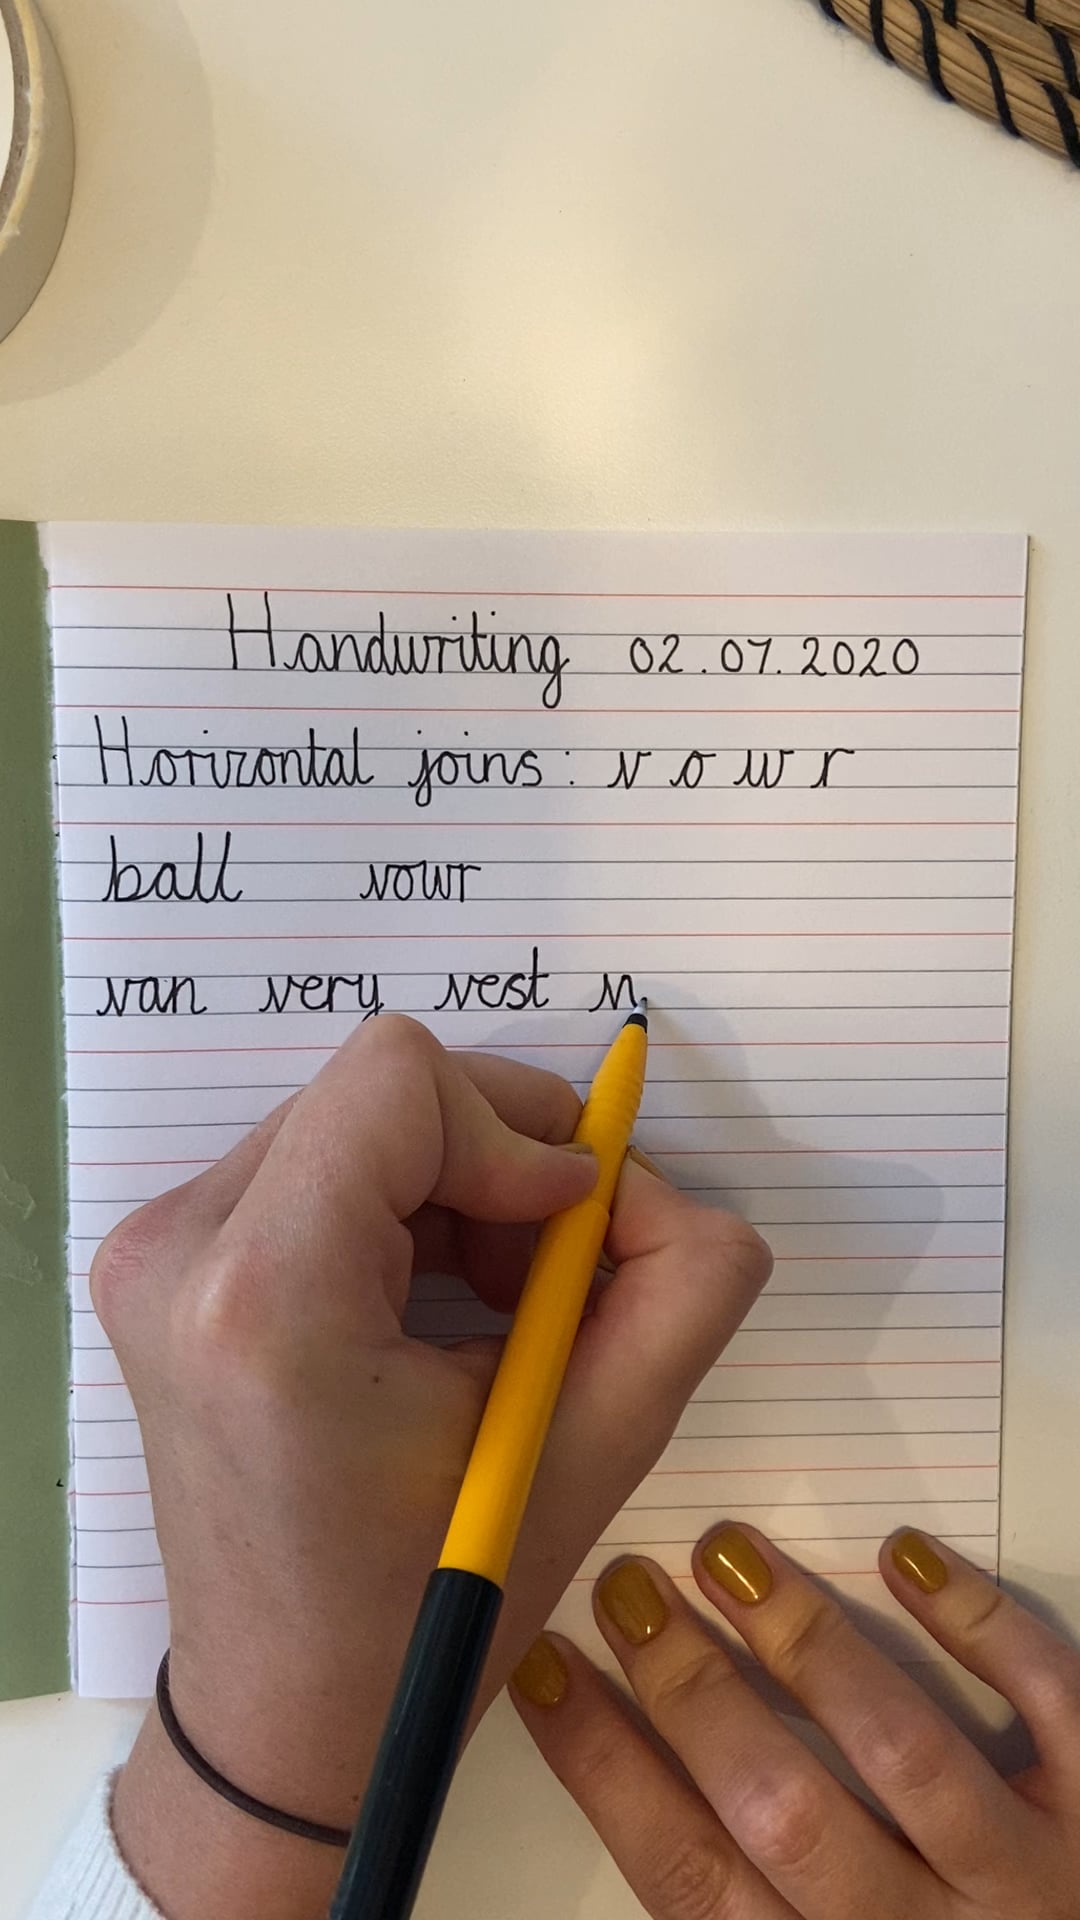 Handwriting 02.07.2020
Horizontal joins: v o w r
ball vowr
van very vest